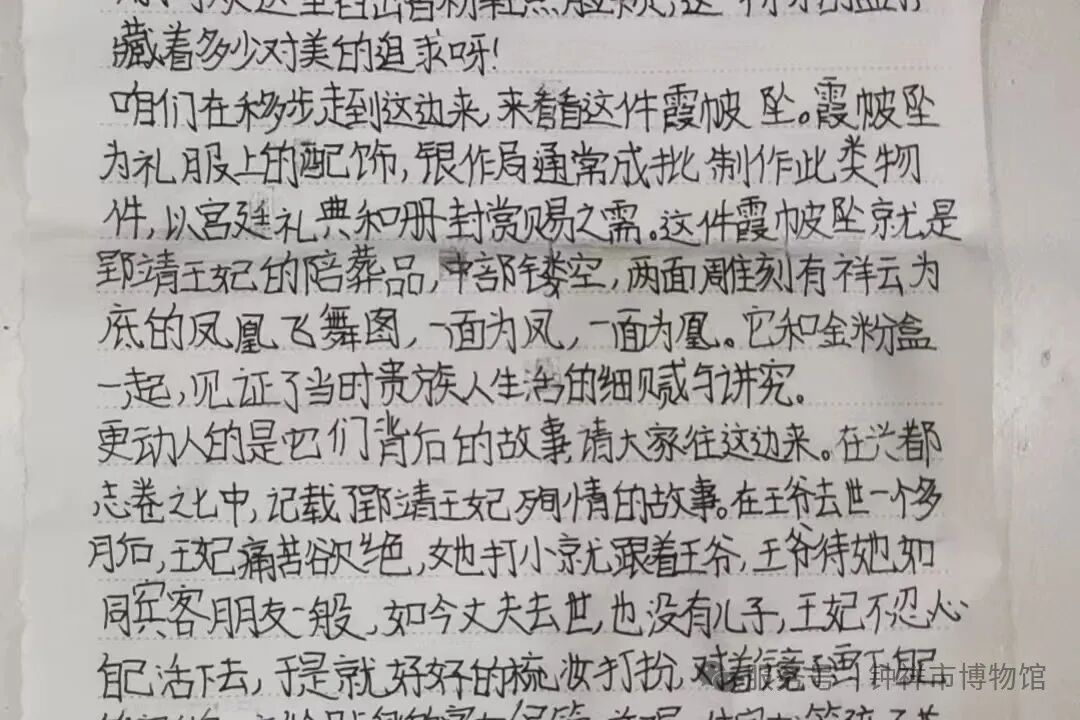 藏着多少对美的追求呀!
咱们在移步走到这边来,来看看这件霞帔坠。霞帔坠
为礼服上的配饰,银作局通常成批制作此类物
件,以宫廷礼典和册封赏赐之需。这件霞帔坠就是
郢靖王妃的陪葬品,中部镂空,两面雕刻有祥云为
底的凤凰飞舞图,一面为凤,一面为凰。它和金粉盒
一起,见证了当时贵族人生活的细腻与讲究。
更动人的是它们背后的故事,请大家往这边来。在兴都
志卷之七中,记载了郢靖王妃殉情的故事。在王爷去世一个多
月后,王妃痛苦欲绝,她打小就跟着王爷,王爷待她如
同宾客朋友一般,如今丈夫去世,也没有儿子,王妃不忍心
自己活下去,于是就好好的梳妆打扮,对着镜子画下自己
钟祥市博物馆